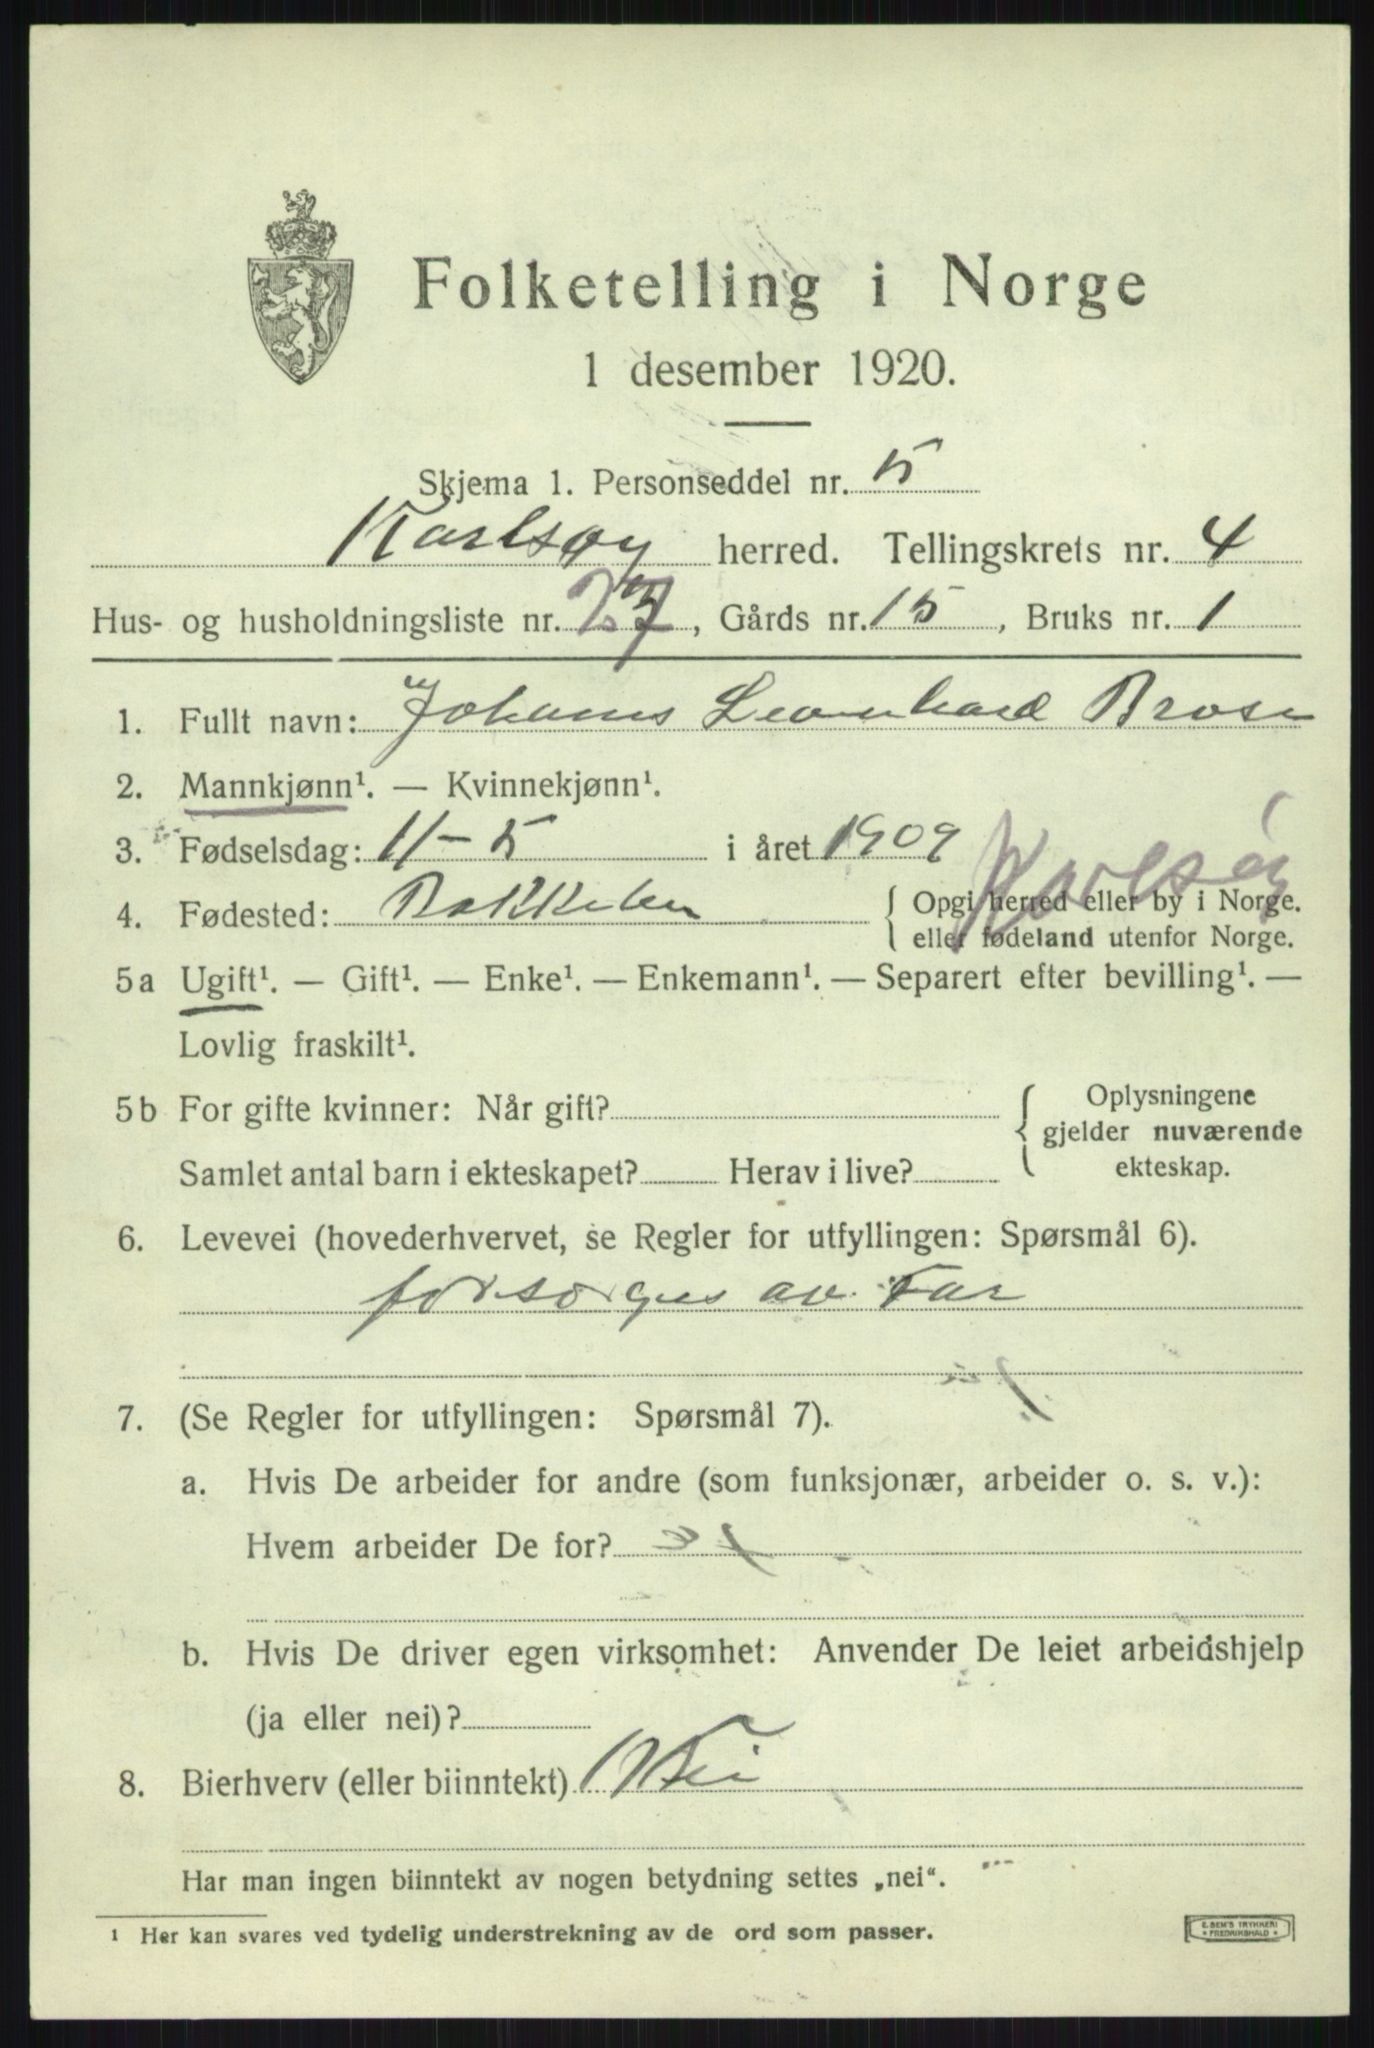 Folketelling i Norge
1 desember 1920.
Skjema 1. Personseddel nr. 5
Karlsøy herred. Tellingskrets nr. 4
Hus- og husholdningsliste nr. 27, Gårds nr. 15, Bruks nr. 1
1. Fullt navn: Johans Leonhard Brose
2. Mannkjønn¹. — Kvinnekjønn¹.
3. Fødselsdag: 11-5 i året 1909
Karlsöy
4. Fødested: { Opgi herred eller by i Norge.
eller fødeland utenfor Norge.
5a Ugift¹. — Gift¹. — Enke¹. — Enkemann¹. — Separert efter bevilling¹. —
Lovlig fraskilt¹.
5b For gifte kvinner: Når gift? { Oplysningene
gjelder nuværende
ekteskap.
Samlet antal barn i ekteskapet? Herav i live?
6. Levevei (hovederhvervet, se Regler for utfyllingen: Spørsmål 6).
forsorges av Far
7. (Se Regler for utfyllingen: Spørsmål 7).
a. Hvis De arbeider for andre (som funksjonær, arbeider o. s. v.):
Hvem arbeider De for?
b. Hvis De driver egen virksomhet: Anvender De leiet arbeidshjelp
(ja eller nei)?
8. Bierhverv (eller biinntekt) Nei
Har man ingen biinntekt av nogen betydning settes „nei“.
¹ Her kan svares ved tydelig understrekning av de ord som passer.
E. SEM'S TRYKKERI
* FREDRIKSHALD *